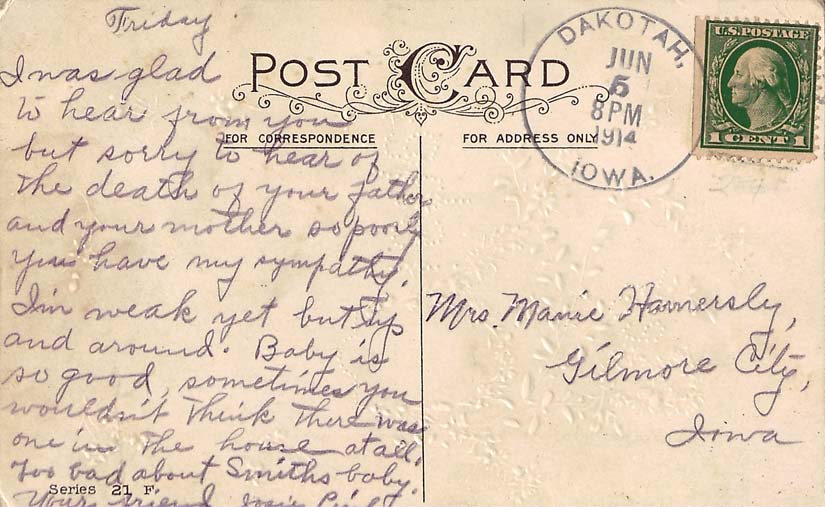 Friday
I was glad
to hear from you
but sorry to hear of
the death of your father
and your mother so poorly
you have my sympathy.
I'm weak yet but up
and around. Baby is
so good, sometimes you
wouldn't think there was
one in the house at all.
Too bad about Smiths baby.
Your friend Josie
POST CARD
FOR CORRESPONDENCE
FOR ADDRESS ONLY
DAKOTAH,
JUN
5
8PM
1914
IOWA.
U.S. POSTAGE
1 CENT 1
Mrs. Mamie Hamersly,
Gilmore City,
Iowa
Series 21 F.